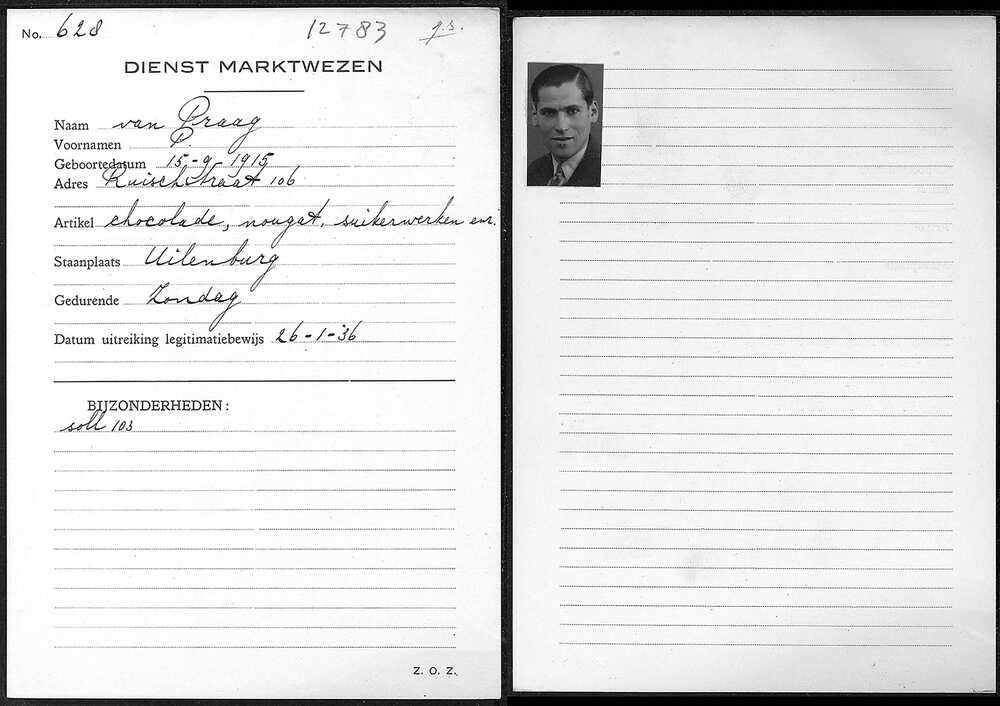 No. 628 12783 g.s.
DIENST MARKTWEZEN
Naam van Praag
Voornamen P.
Geboortedatum 15-9-1915
Adres Ruischstraat 106
Artikel chocolade, nougat, suikerwerken enz.
Staanplaats Uilenburg
Gedurende Zondag
Datum uitreiking legitimatiebewijs 26-1-'36
BIJZONDERHEDEN:
soll 103
Z. O. Z.